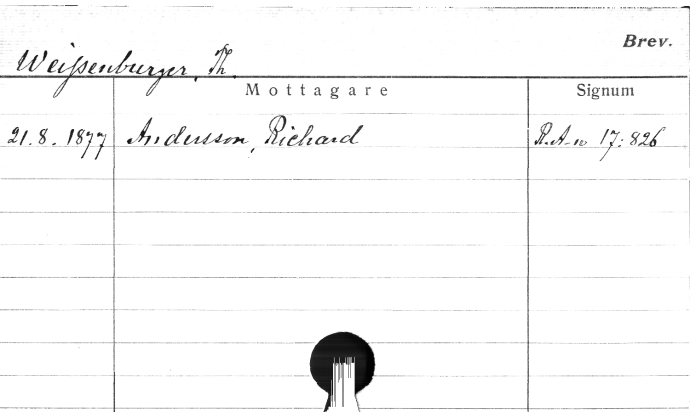 Brev.
Weißenburger, Th.
Mottagare Signum
21.8.1877 Andersson, Richard R.A-n 17:826